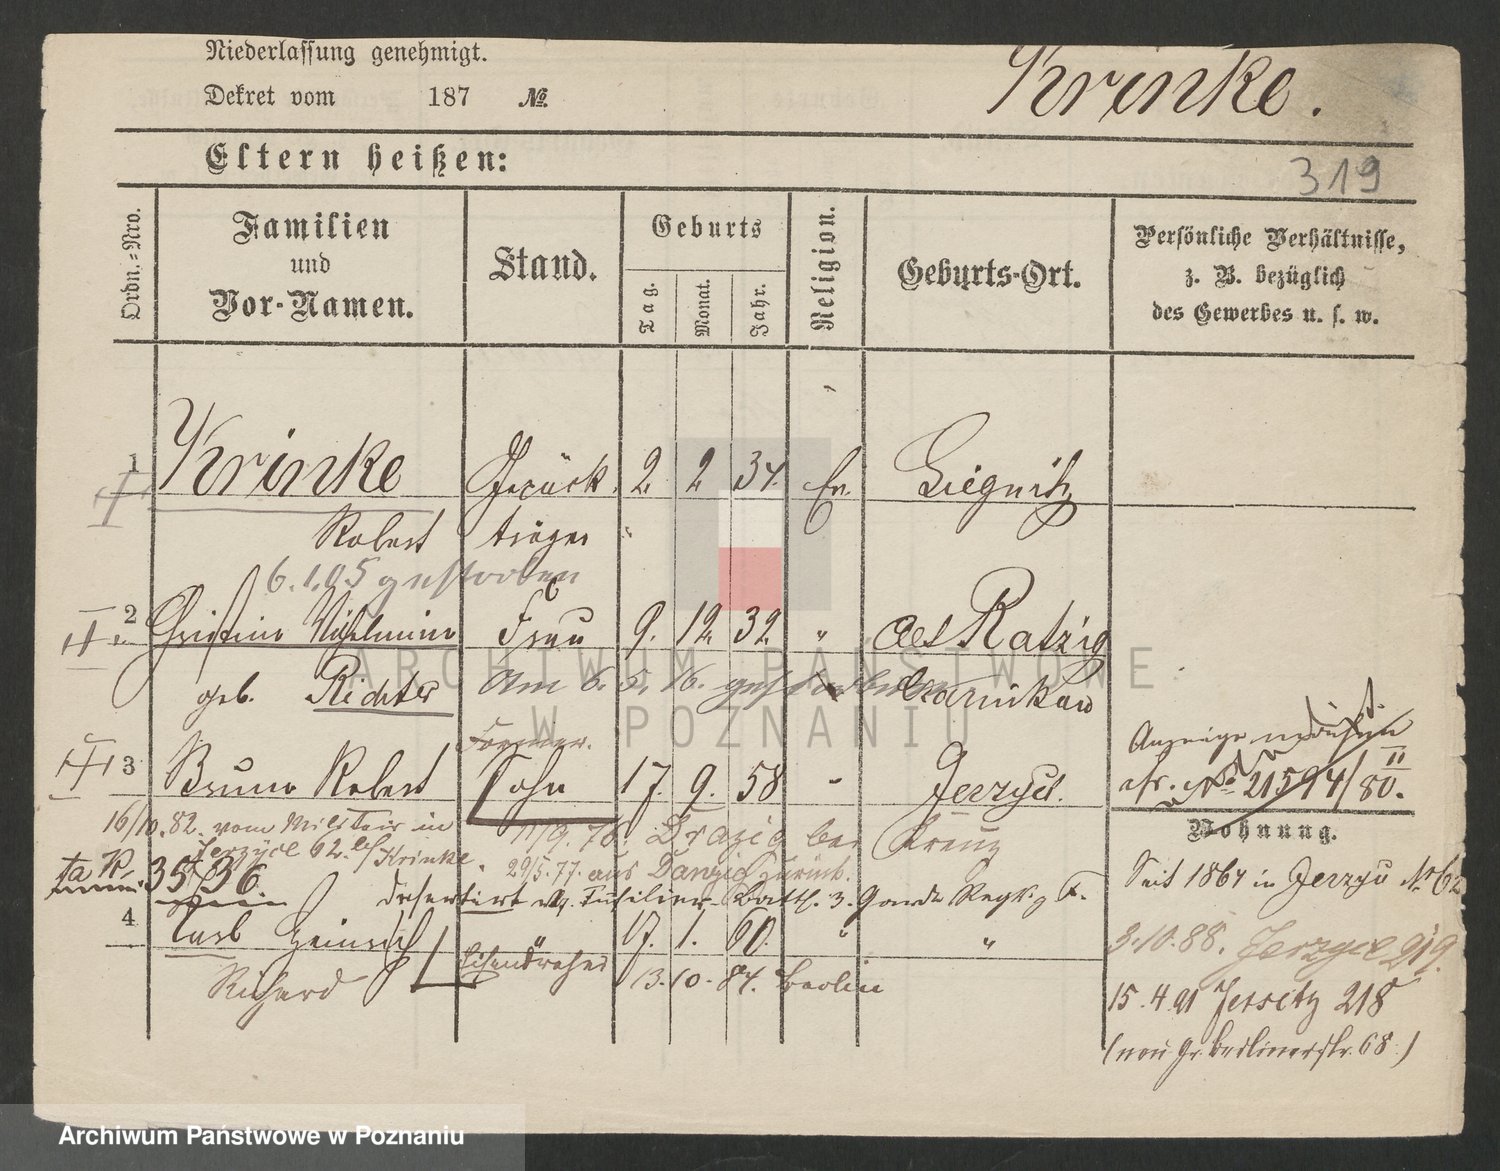 Niederlassung genehmigt.
Dekret vom 187 №
Krinke.
Eltern heißen:
319
Ordn.-Nro.
Familien
und
Vor-Namen.
Stand.
Geburts
Tag.
Monat.
Jahr.
Religion.
Geburts-Ort.
Persönliche Verhältnisse,
z. B. bezüglich
des Gewerbes u. s. w.
1 Krinke Gepäck 2 2 34. Ev. Liegnitz
Robert träger
6.1.05 gestorben
2 Wilhelmine Frau 9. 12. 32. " Ratzig
geb. Richter Am 6. 5. 16. gestorben Czarnikau
3 Bruno Robert Sohn 17. 9. 58 " Jerzyce.
16/10.82. vom Militair in
Jerzyce 62 Krinke.
Drazig bei Kreuz
29/5.77. aus Danzig zurück.
35/36.
desertirt Füsilier Batl. 3. Garde Regt. z. F.
4 Carl Heinrich " 17. 1. 60. " "
Richard
13.10.84. Berlin
Anzeige
№ 21594/80. II
Wohnung.
Seit 1864 in Jerzyce № 62
3.10.88. Jerzyce 219.
15.4.91 Jersitz 218
(neu Gr. Berlinerstr. 68)
ARCHIWUM PAŃSTWOWE
W POZNANIU
Archiwum Państwowe w Poznaniu